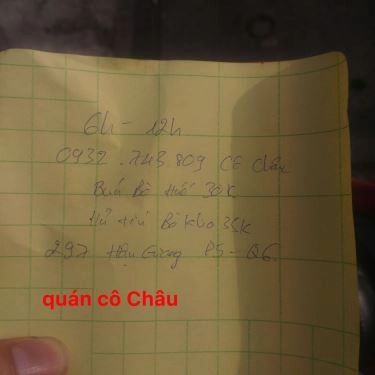 6h - 12h
0932.743.809 Cô Châu
Bún Bò Huế 30K
Hủ tiếu Bò kho 35K
297 Hậu Giang P5 - Q6
quán cô Châu